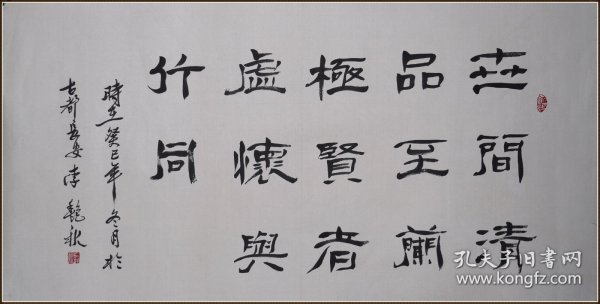 世間清
品至蘭
極賢者
虛懷與
竹同
時在癸巳年冬月於
古都長安李艷秋
孔夫子旧书网
www.kongfz.com